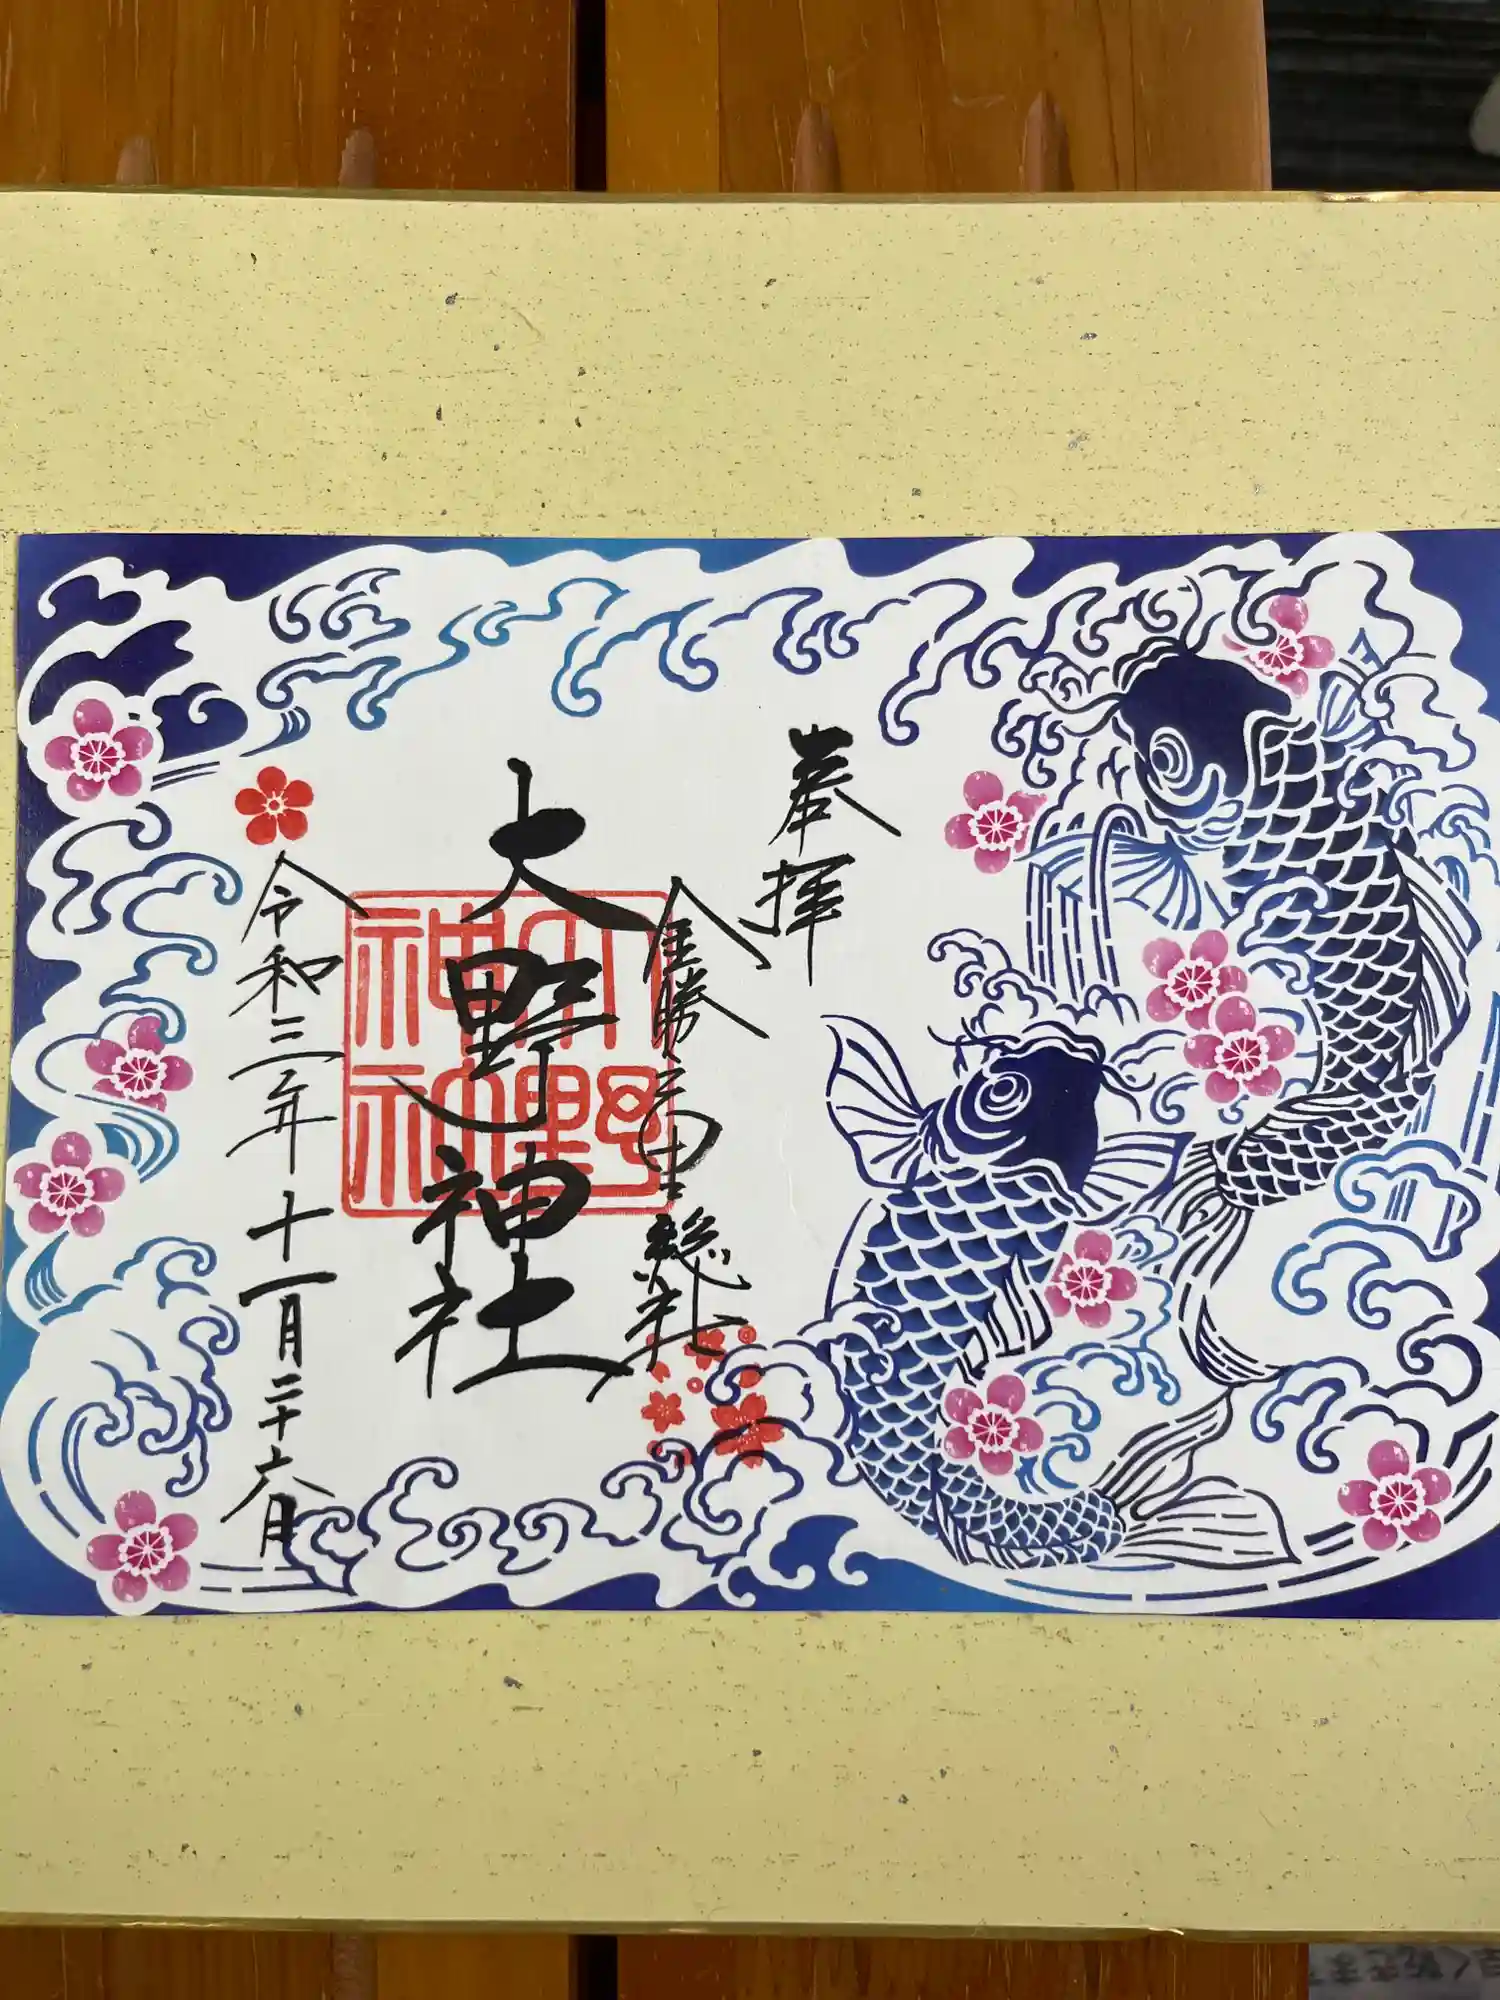 奉拝
金勝之里総社
大野神社
大野神社
令和三年十一月二十六日